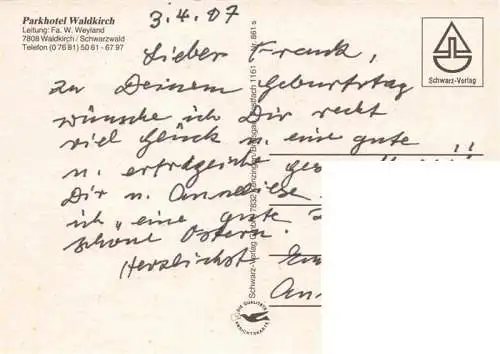 Parkhotel Waldkirch
Leitung: Fa. W. Weyland
7808 Waldkirch / Schwarzwald
Telefon (0 76 81) 50 61 - 67 97
3.4.87
Schwarz-Verlag
Lieber Frank,
zu Deinem Geburtstag
wünsche ich Dir recht
viel Glück u. eine gute
u. ertragreiche
Dir u. Anneliese
ich eine gute
schöne Ostern.
Herzlichst
Schwarz-Verlag GmbH 7832 Kenzingen/Breisgau Postfach 1161 Nr. 861 s
DIE QUALITÄTS ANSICHTSKARTE